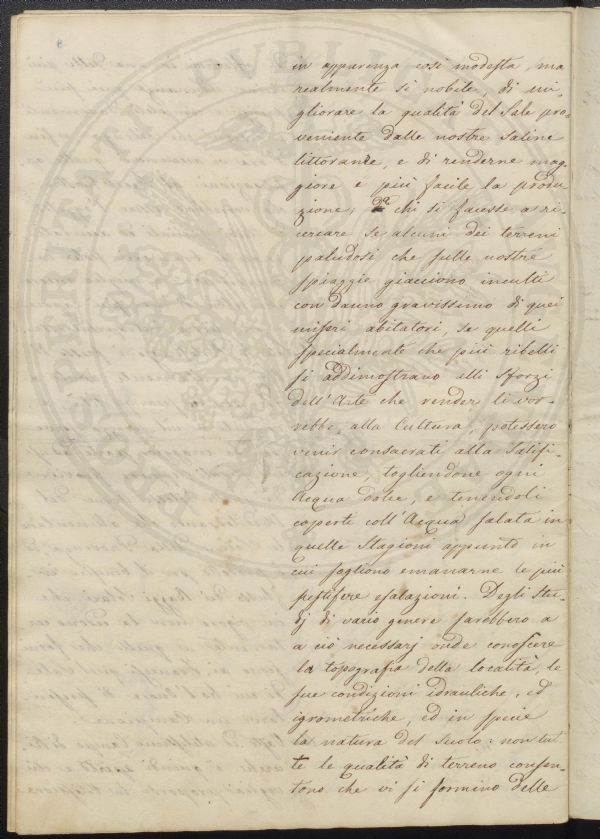 in apparenza così modesta, ma
realmente sì nobile, di mi-
gliorare la qualità del Sale pro-
veniente dalle nostre Saline
littoranee, e di renderne mag-
giore e più facile la produ-
zione; 2º chi si facesse a ri-
cercare se alcuni dei terreni
paludosi che sulle nostre
spiaggie giacciono inculti
con danno gravissimo di quei
miseri abitatori, se quelli
specialmente che più ribelli
si addimostrano alli Sforzi
dell'Arte che render li vor-
rebbe alla Cultura, potessero
venir consacrati alla Salifi-
cazione, togliendone ogni
Acqua dolce, e tenendoli
coperti coll'Acqua salata in
quelle Stagioni appunto in
cui sogliono emanarne le più
pestifere esalazioni. Degli Stu-
dj di vario genere sarebbero a
a ciò necessarj onde conoscere
la topografia della località, le
sue condizioni idrauliche, ed
igrometriche, ed in specie
la natura del Suolo: non tut-
te le qualità di terreno consen-
tono che vi si formino delle